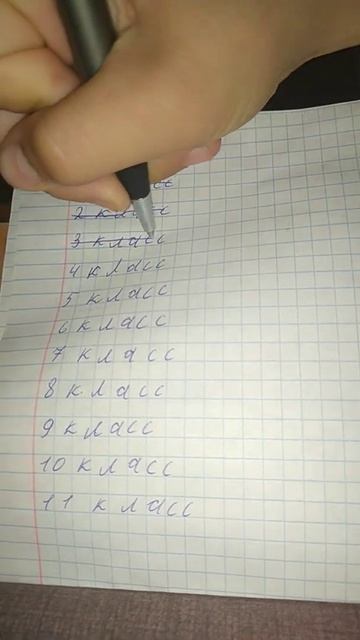 2 класс
3 класс
4 класс
5 класс
6 класс
7 класс
8 класс
9 класс
10 класс
11 класс